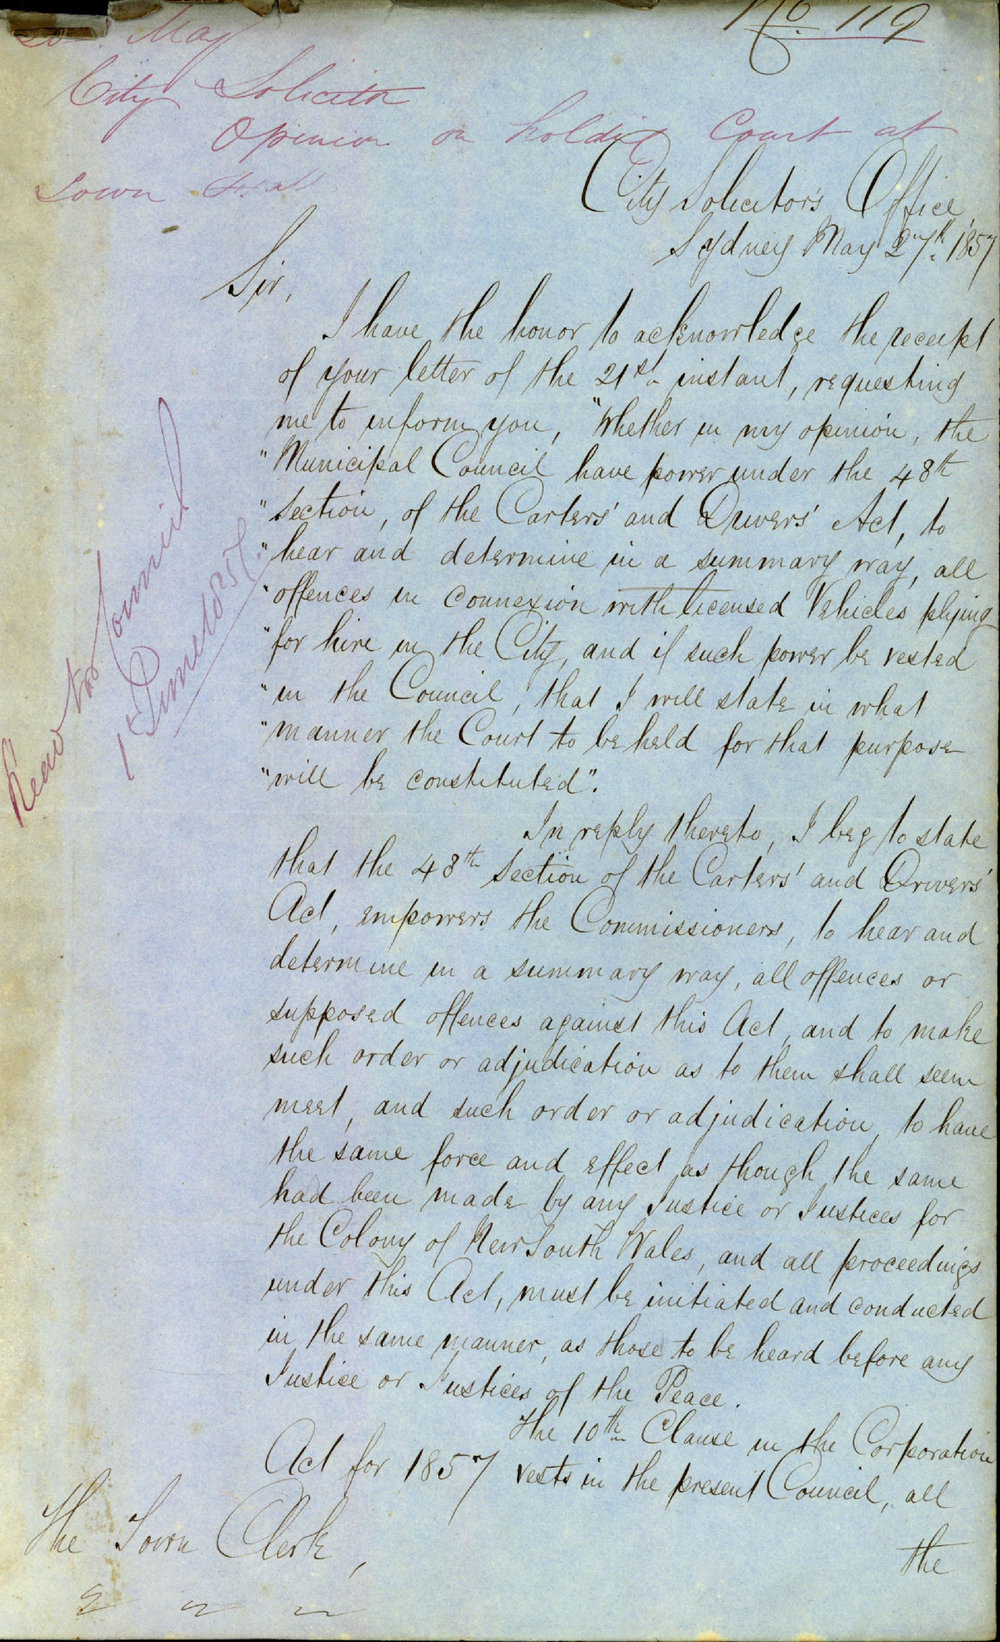 No. 119
May
City Solicitor
Opinion on holding Court at
Town Hall
City Solicitor's Office,
Sydney May 27th. 1857
Sir,
I have the honor to acknowledge the receipt
of your letter of the 21st. instant, requesting
me to inform you, "Whether in my opinion, the
"Municipal Council have power under the 48th
"Section, of the Carters' and Drivers' Act, to
"hear and determine in a summary way, all
"offences in connexion with licensed Vehicles plying
"for hire in the City, and if such power be vested
"in the Council, that I will state in what
"manner the Court to be held for that purpose
"will be constituted".
Read to Council
1st June 1857
In reply thereto, I beg to state
that the 48th Section of the Carters' and Drivers'
Act, empowers the Commissioners, to hear and
determine in a summary way, all offences or
supposed offences against this Act, and to make
such order or adjudication as to them shall seem
meet, and such order or adjudication, to have
the same force and effect as though the same
had been made by any Justice or Justices for
the Colony of New South Wales, and all proceedings
under this Act, must be initiated and conducted
in the same manner, as those to be heard before any
Justice or Justices of the Peace.
The 10th Clause in the Corporation
Act for 1857 vests in the present Council, all
the
The Town Clerk,